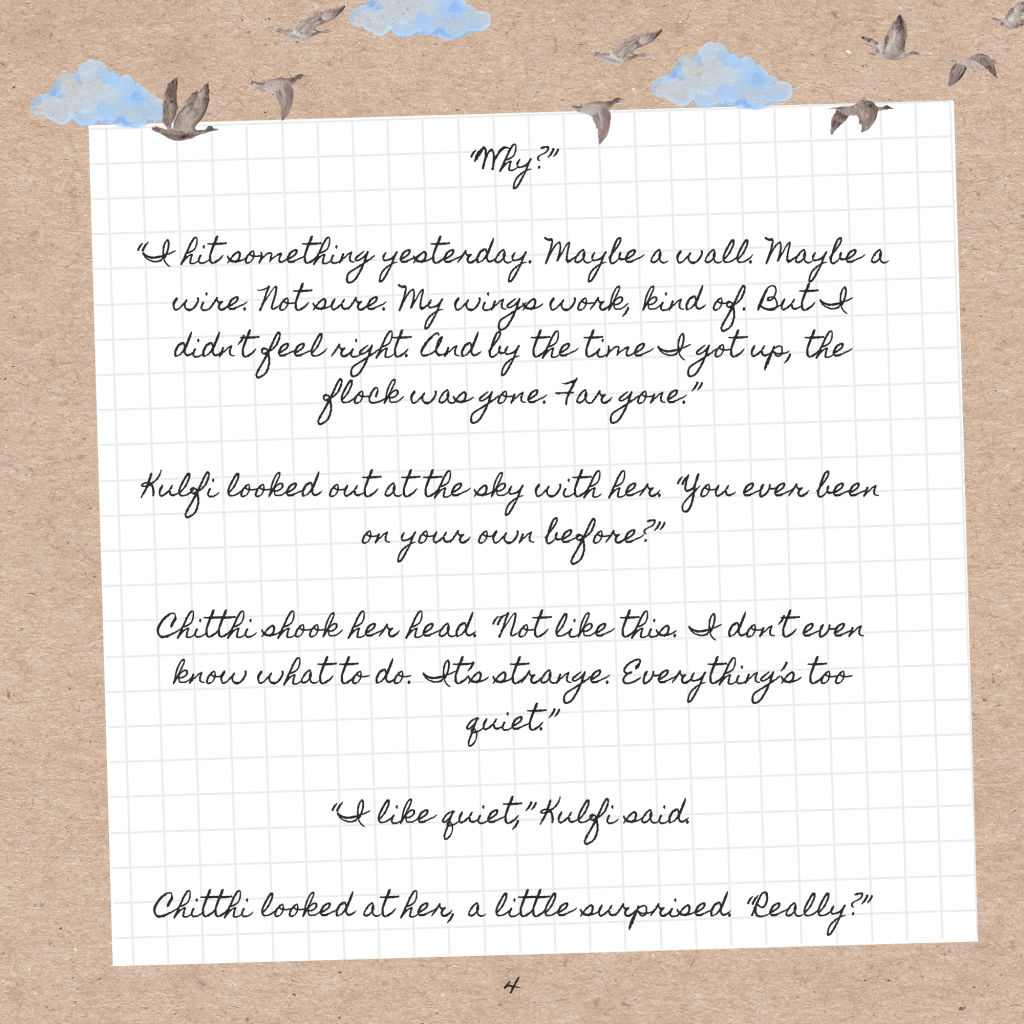 “Why?”
“I hit something yesterday. Maybe a wall. Maybe a
wire. Not sure. My wings work, kind of. But I
didn’t feel right. And by the time I got up, the
flock was gone. Far gone.”
Kulfi looked out at the sky with her. “You ever been
on your own before?”
Chitthi shook her head. “Not like this. I don’t even
know what to do. It’s strange. Everything’s too
quiet.”
“I like quiet,” Kulfi said.
Chitthi looked at her, a little surprised. “Really?”
4